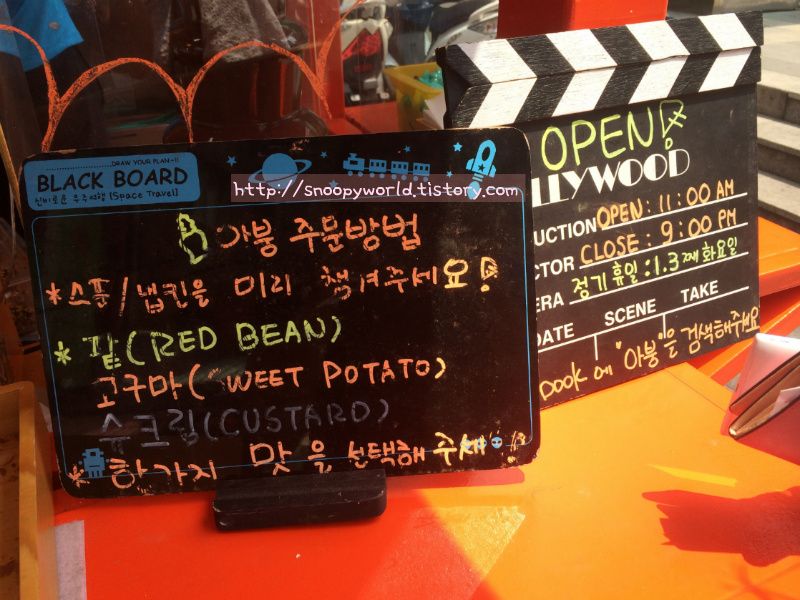 DRAW YOUR PLAN~!!
BLACK BOARD
신비로운 우주여행 [Space Travel]
http://snoopyworld.tistory.com
아붕 주문방법
*스푼/냅킨을 미리 챙겨주세요!
* 팥(RED BEAN)
고구마(SWEET POTATO)
슈크림(CUSTARD)
* 한가지 맛을 선택해 주세요
OPEN!
LLYWOOD
UCTION OPEN : 11:00 AM
CTOR CLOSE : 9:00 PM
ERA 정기휴일 : 1.3째 화요일
DATE SCENE TAKE
book에 "아붕"을 검색해주세요